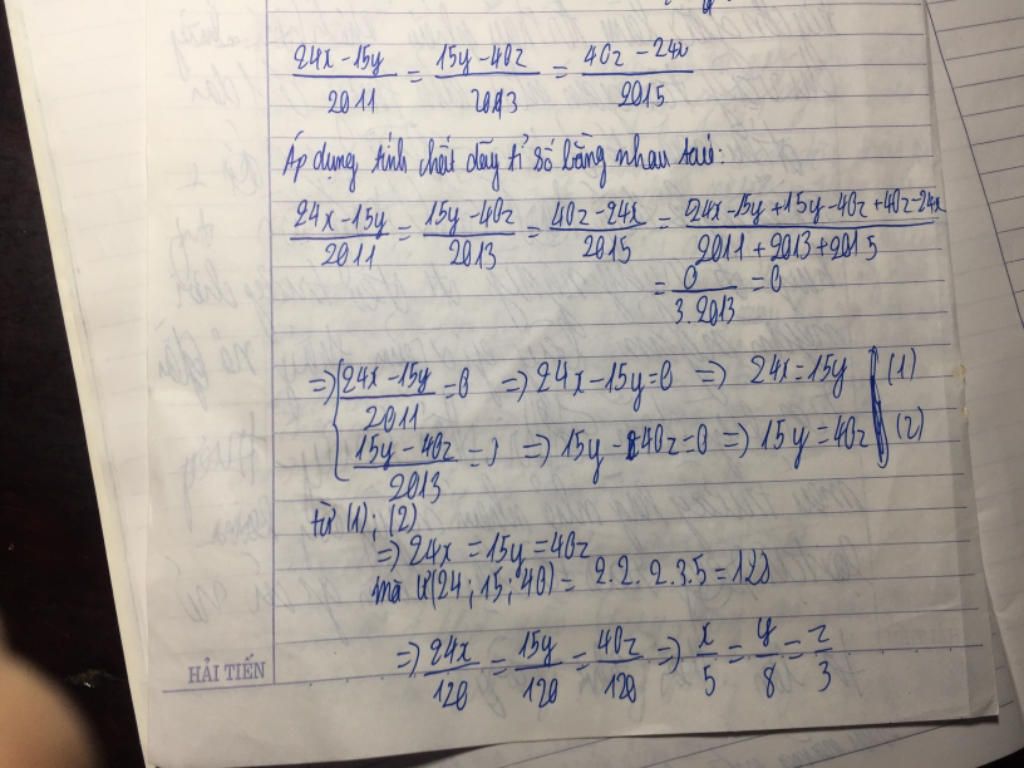 24x - 15y / 2011 = 15y - 40z / 2013 = 40z - 24x / 2015
Áp dụng tính chất dãy tỉ số bằng nhau có:
24x - 15y / 2011 = 15y - 40z / 2013 = 40z - 24x / 2015 = 24x - 15y + 15y - 40z + 40z - 24x / 2011 + 2013 + 2015
= 0 / 3.2013 = 0
=> { 24x - 15y / 2011 = 0 => 24x - 15y = 0 => 24x = 15y (1)
15y - 40z / 2013 = 0 => 15y - 40z = 0 => 15y = 40z (2)
từ (1); (2)
=> 24x = 15y = 40z
mà (24; 15; 40) = 2.2.2.3.5 = 120
=> 24x / 120 = 15y / 120 = 40z / 120 => x / 5 = y / 8 = z / 3
HẢI TIẾN